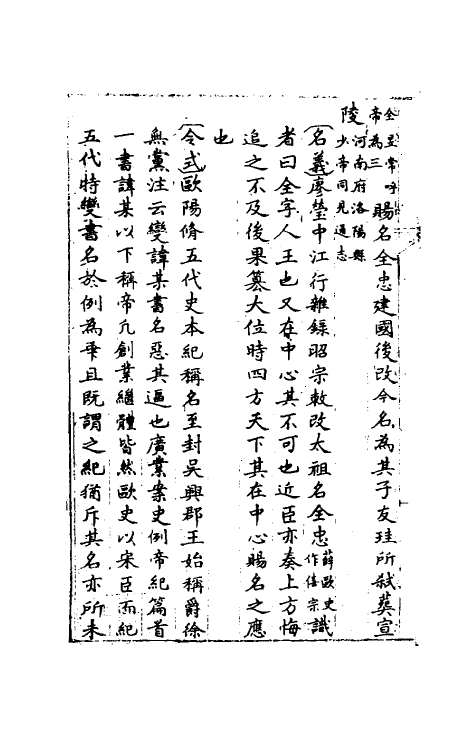 全昱常呼帝為三賜名全忠建國後改今名為其子友珪所弑葬宣
陵河南府洛陽縣少帝同見通志
名義廖瑩中江行雜錄昭宗敕改太祖名全忠薛歐史作僖宗識
者曰全字人王也又在中心其不可也近臣亦奏上方悔
追之不及後果篡大位時四方天下其在中心賜名之應
也
令式歐陽脩五代史本紀稱名至封吳興郡王始稱爵徐
無黨注云變諱某書名惡其逼也廣業案史例帝紀篇首
一書諱某以下稱帝凡創業繼體皆然歐史以宋臣而紀
五代特變書名於例為乖且既謂之紀猶斥其名亦所未